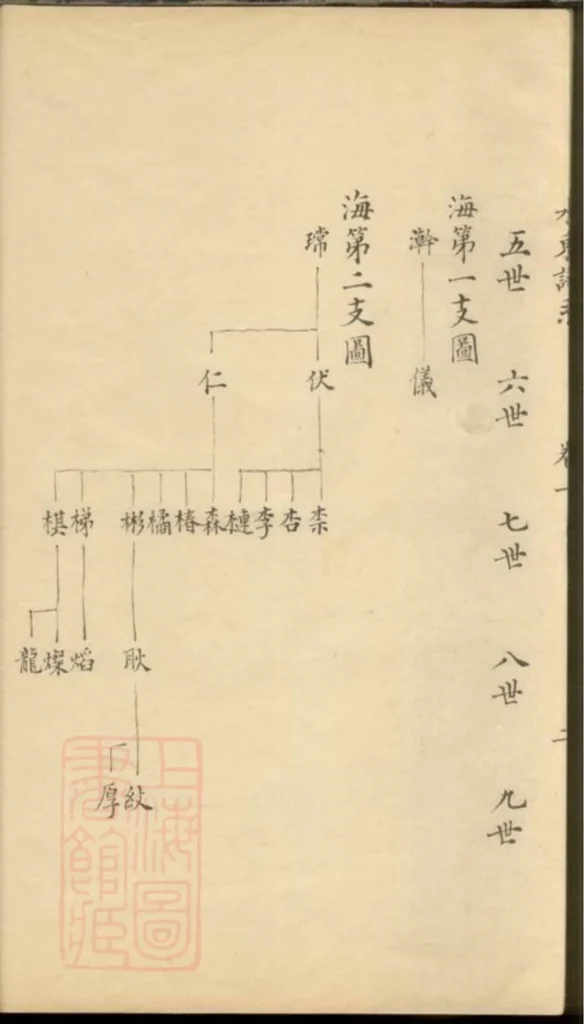 五世 六世 七世 八世 九世
海第一支圖
澣 儀
海第二支圖
伏 仁
柰 杏 李 槤 森 椿 橘 彬 梯 棋
耿 焰 燦 龍
厚
上海圖書館藏